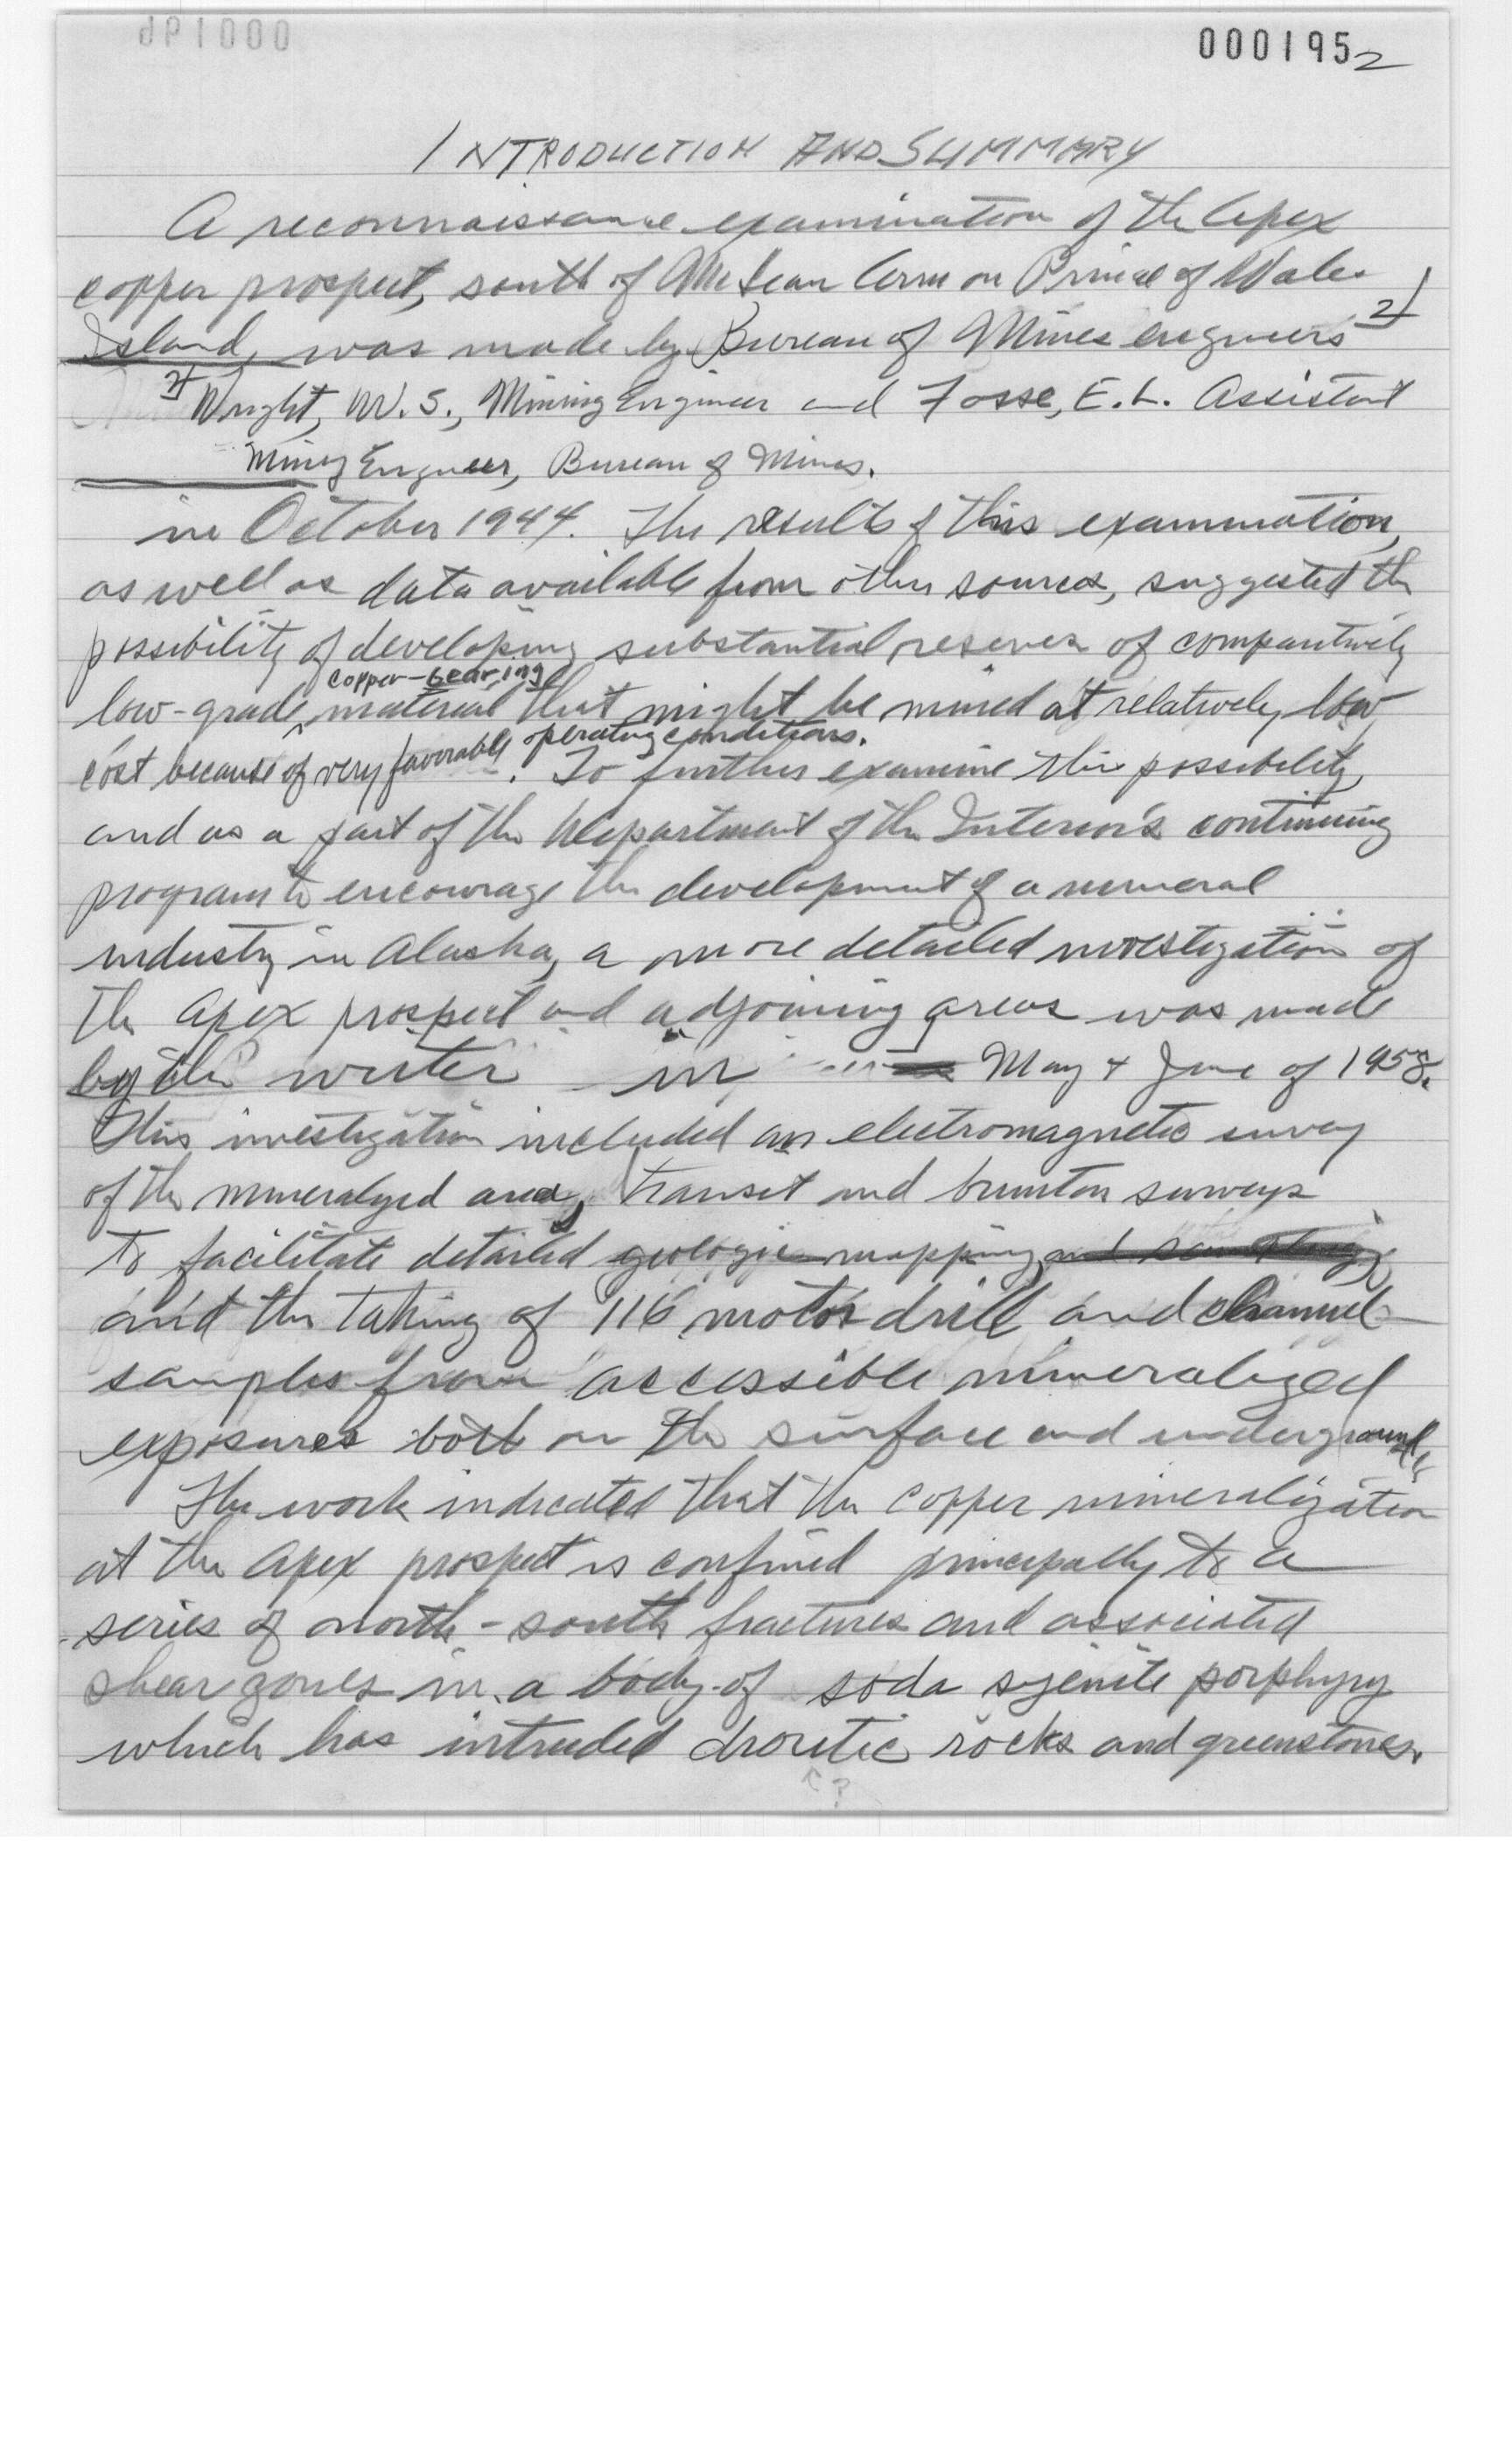 000195 2
INTRODUCTION AND SUMMARY
A reconnaissance examination of the Apex
copper prospect, south of McLean Arm on Prince of Wales
Island, was made by Bureau of Mines engineers 2/
2/ Wright, W. S., Mining Engineer and Fosse, E. L. Assistant
Mining Engineer, Bureau of Mines.
in October 1944. The results of this examination,
as well as data available from other sources, suggested the
possibility of developing substantial reserves of comparatively
copper-bearing
low-grade material that might be mined at relatively low
cost because of very favorable operating conditions. To further examine this possibility,
and as a part of the Department of the Interior's continuing
program to encourage the development of a mineral
industry in Alaska, a more detailed investigation of
the Apex prospect and adjoining areas was made
by the writer in May + June of 1958.
This investigation included an electromagnetic survey
of the mineralized area, transit and brunton surveys
to facilitate detailed geologic mapping,
and the taking of 116 motor drill and channel
samples from accessible mineralized
exposures both on the surface and underground.
The work indicated that the copper mineralization
at the Apex prospect is confined principally to a
series of north-south fractures and associated
shear zones in a body of soda syenite porphyry
which has intruded dioritic rocks and greenstones.
?